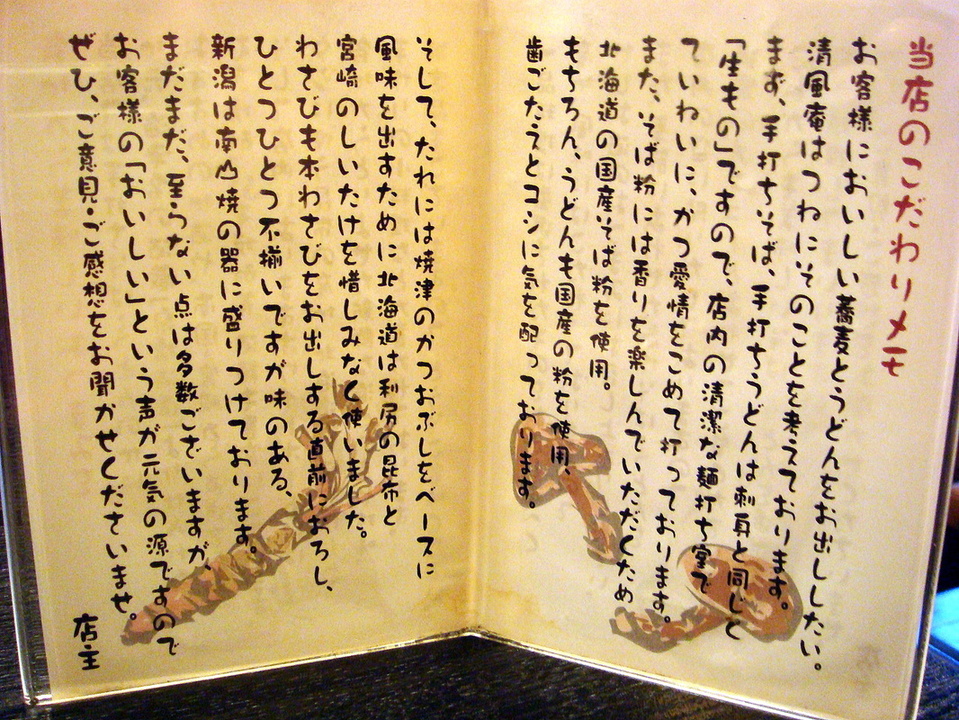 当店のこだわりメモ
お客様においしい蕎麦とうどんをお出ししたい。
清風庵はつねにそのことを考えております。
まず、手打ちそば、手打ちうどんは刺身と同じく
「生もの」ですので、店内の清潔な麺打ち室で
ていねいに、かつ愛情をこめて打っております。
また、そば粉には香りを楽しんでいただくため
北海道の国産そば粉を使用。
もちろん、うどんも国産の粉を使用、
歯ごたえとコシに気を配っております。
そして、たれには焼津のかつおぶしをベースに
風味を出すために北海道は利尻の昆布と
宮崎のしいたけを惜しみなく使いました。
わさびも本わさびをお出しする直前におろし、
ひとつひとつ不揃いですが味のある、
新潟は南山焼の器に盛りつけております。
まだまだ、至らない点は多数ございますが、
お客様の「おいしい」という声が元気の源ですので
ぜひ、ご意見・ご感想をお聞かせくださいませ。
店主